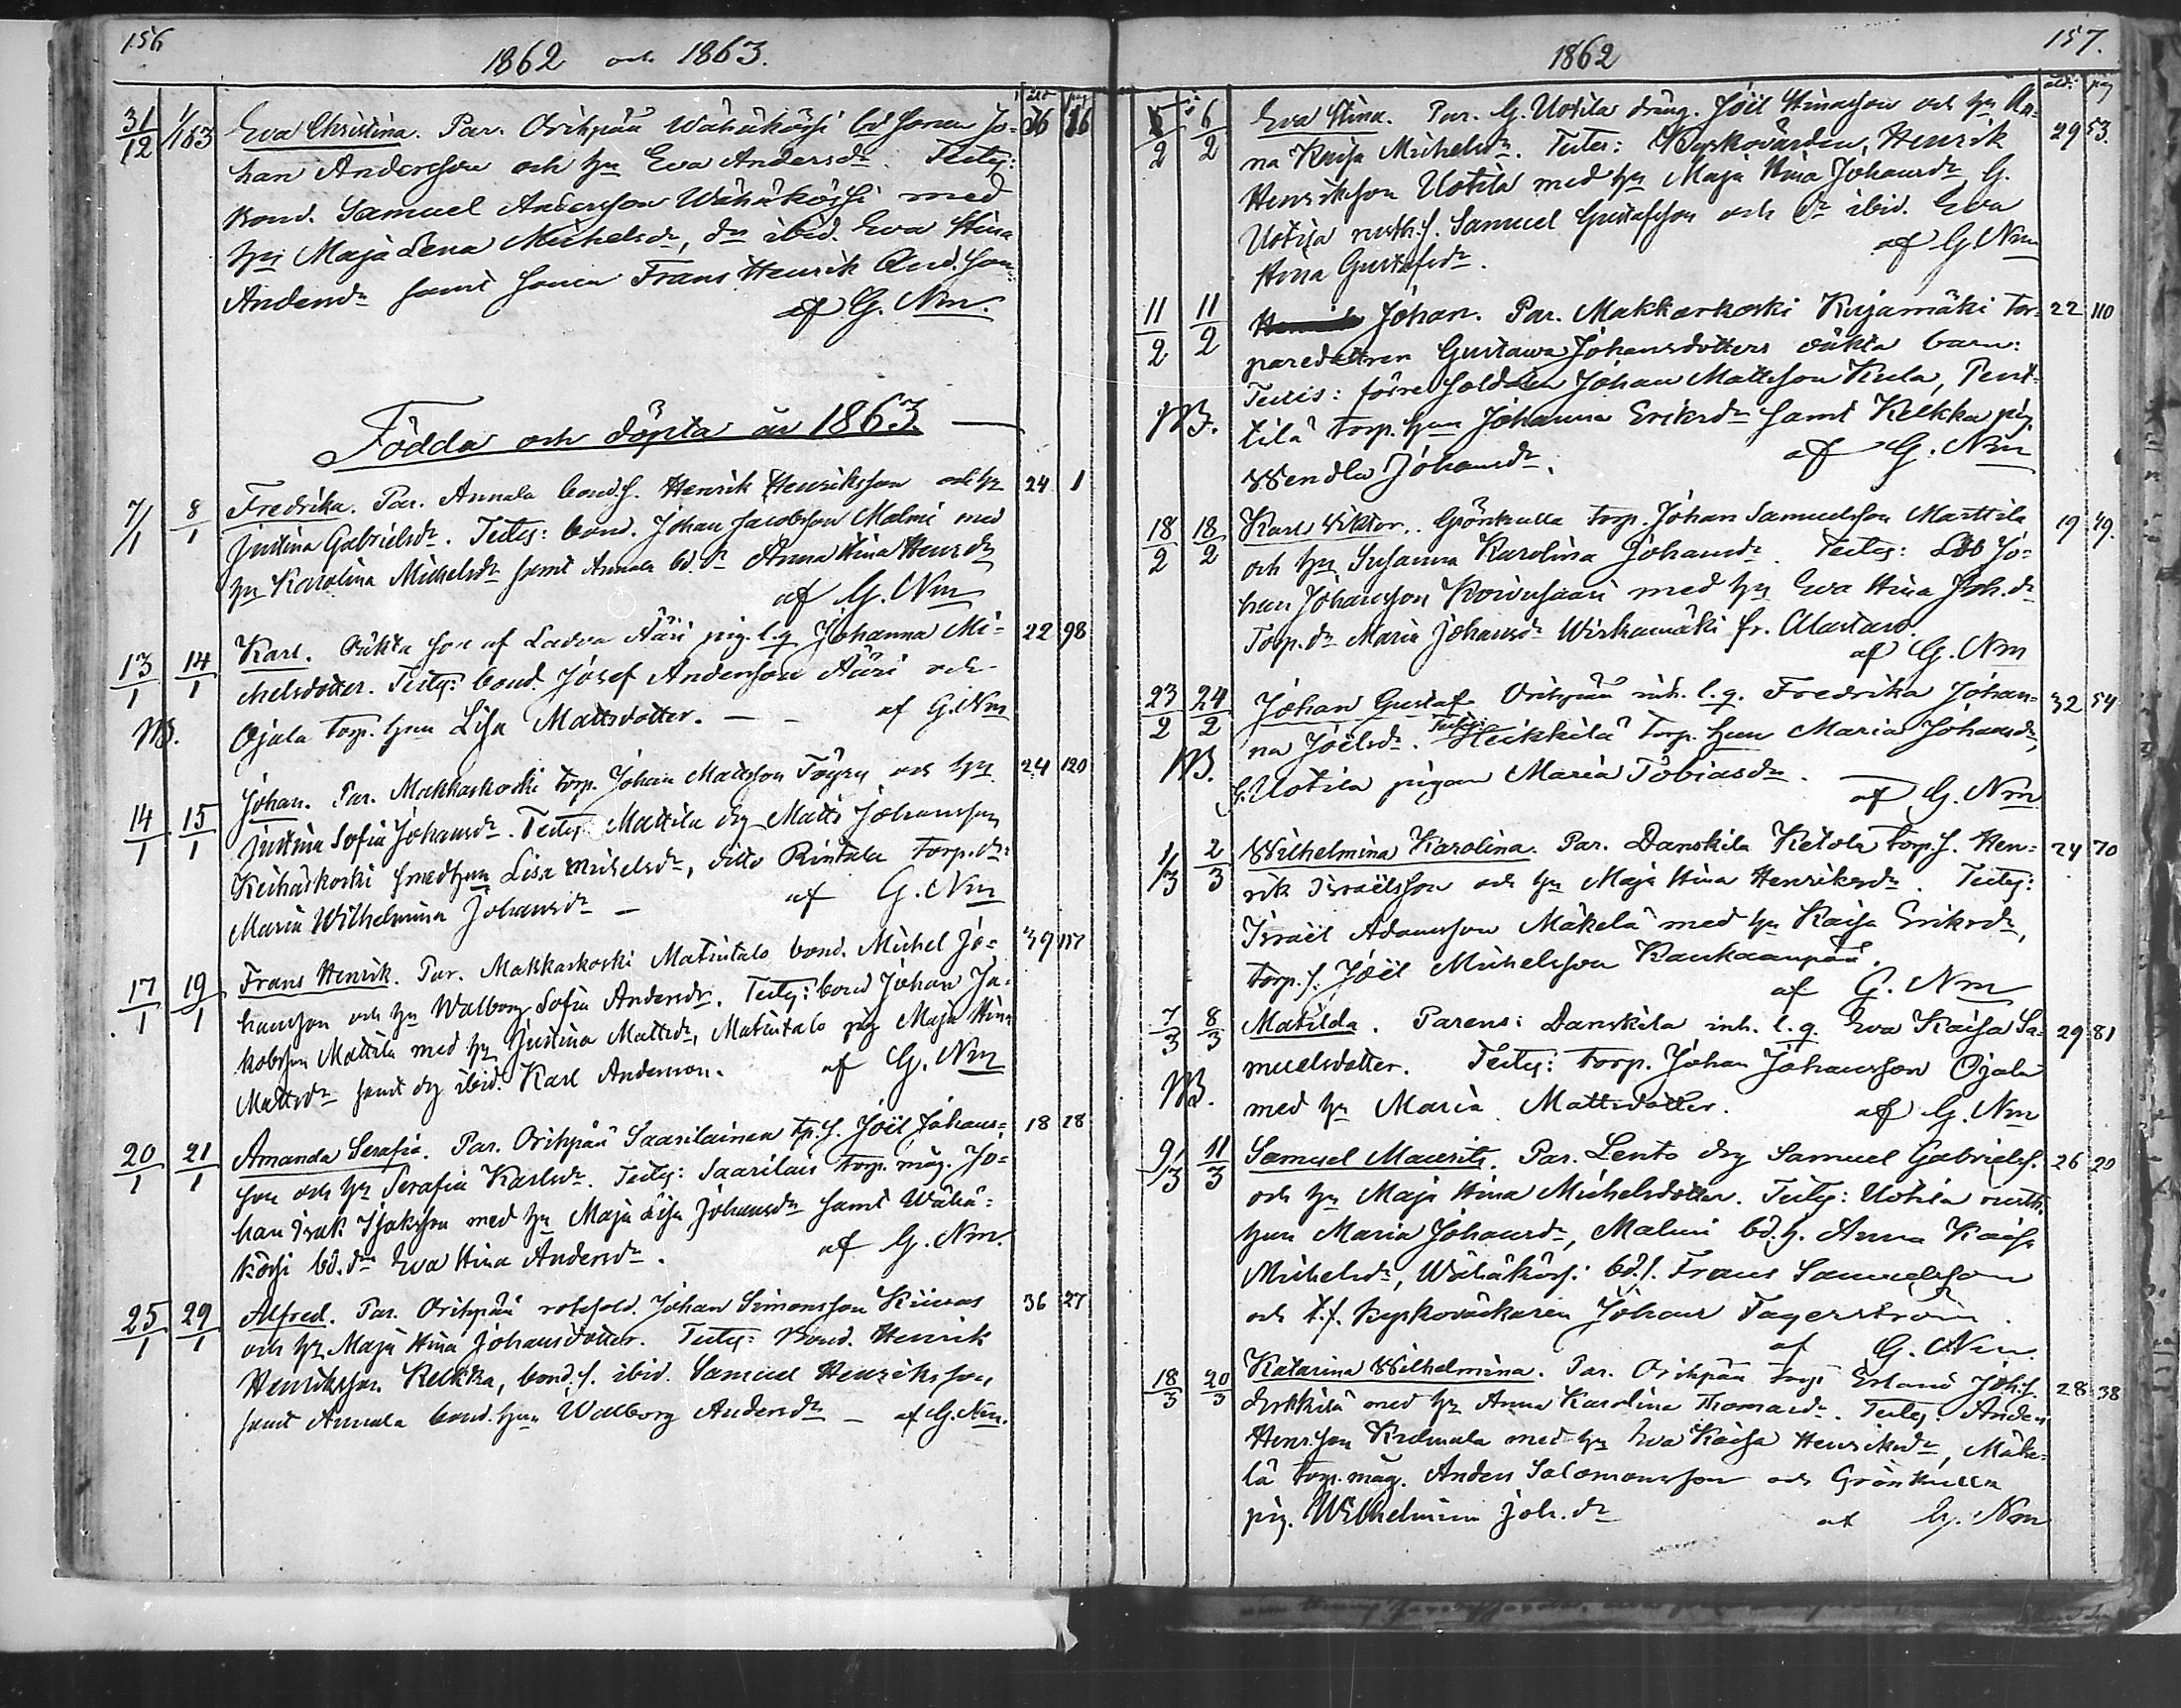 156
1862 och 1863.
åld pag
31/12 1/1 63 Eva Christina. Par. Orihpää Wähäkössi bd sonen Jo= 36 16
han Andersson och hu Eva Andersdr. Testes:
bond. Samuel Andersson Wähäkössi med
hu Maja Lena Michelsdr, dr ibid. Eva Stina
Andersdr samt sonen Frans Henrik And.son
af G. Nm.
Födda och döpta år 1863.
7/1 8/1 Fredrika. Par. Annala bond.s. Henrik Henriksson och hu 24 1
Justina Gabrielsdr. Testes: bond. Johan Jacobsson Malmi med
hu Karolina Michelsdr samt Annala bd. dr Anna Stina Henrdr
af G. Nm
13/1 14/1 Karl. Oäkta son af Ladva Ääri pig. l.q. Johanna Mi= 22 98
chelsdotter. Testes: bond. Josef Andersson Ääri och
NB. Ojala torp. hun Lisa Mattsdotter. — af G. Nm
14/1 15/1 Johan. Par. Makkarkoski torp. Johan Mattsson Töyry och hu 24 120
Justina Sofia Johansdr. Testes Mattila drg Matts Johansson
Keihäskoski smedhun Lisa Michelsdr, ditto Rintala torp. dr:
Maria Wilhelmina Johansdr — af G. Nm
17/1 19/1 Frans Henrik. Par. Makkarkoski Matintalo bond. Michel Jo= 39 117
hansson och hu Walborg Sofia Andersdr. Testes: bond Johan Ja=
kobsson Mattila med hu Justina Mattsdr, Matintalo pig Maja Stina
Mattsdr samt drg ibid. Karl Andersson. af G. Nm
20/1 21/1 Amanda Serafia. Par. Orihpää Saarilainen tp. s. Joël Johans= 18 28
son och hu Serafia Karlsdr. Testes: Saarilais torp. måg. Jo=
han Isak Isaksson med hu Maja Lisa Johansdr samt Wähä=
kössi bd. dr Eva Stina Andersdr. af G. Nm.
25/1 29/1 Alfred. Par. Orihpää rotesold. Johan Simonsson Kiivas 36 27
och hu Maja Stina Johansdotter. Testes: Bond. Henrik
Henriksson Kelkka, bond. s. ibid. Samuel Henriksson
samt Annala bond. hun Walborg Andersdr — af G. Nm.
157.
1862
åld. pag
5/2 6/2 Eva Stina. Par. G. Uotila dräng. Joël Hinrsson och hu An= 29 53.
na Kaisa Michelsdr. Testes: Kyrkovärden, Henrik
Henriksson Uotila med hu Maja Stina Johansdr, G.
Uotila rusth. s. Samuel Gustafsson och dr ibid. Eva
Stina Gustafsdr. af G. Nm
11/2 11/2 Johan. Par. Makkarkoski Kujamäki tor= 22 110
paredottren Gustawa Johansdotters oäkta barn:
Testes: förre soldaten Johan Mattsson Kula, Pent=
NB. tilä torp. hun Johanna Eriksdr samt Kelkka pig.
Wendla Johansdr. af G. Nm
18/2 18/2 Karl Wiktor. Grönkulla torp. Johan Samuelsson Marttila 19 49.
och hu Susanna Karolina Johansdr. Testes: Jo=
han Johansson Koivusaari med hu Eva Stina Joh.dr
Torp. dr Maria Johansdr Wirkamäki fr. Alastaro.
af G. Nm
23/2 24/2 Johan Gustaf Orihpää inh. l.q. Fredrika Johan= 32 54
na Joëlsdr. Testes: Heikkilä torp. hun Maria Johansdr,
NB. G. Uotila pigan Maria Tobiasdr.
af G. Nm
1/3 2/3 Wilhelmina Karolina. Par. Danskila Ketola torp. s. Hen= 24 70
rik Israëlsson och hu Maja Stina Henriksdr. Testes:
Israël Adamsson Mäkelä med hu Kaisa Eriksdr,
torp. s. Joël Michelsson Kankaanpää.
af G. Nm
7/3 8/3 Matilda. Parens: Danskila inh. l.q. Eva Kaisa Sa= 29 81
muelsdotter. Testes: torp. Johan Johansson Ojala
NB. med hu Maria Mattsdotter. af G. Nm
9/3 11/3 Samuel Maurits. Par. Lento drg Samuel Gabrielss. 26 20
och hu Maja Stina Michelsdotter. Testes: Uotila rusth.
hun Maria Johansdr, Malmi bd. h. Anna Kaisa
Michelsdr, Wähäkössi bd. s. Frans Samuelsson
och t.f. kyrkoväktaren Johan Fagerström.
af G. Nm.
18/3 20/3 Katarina Wilhelmina. Par. Orihpää torp Erland Joh.s. 28 38
Erkkilä med hu Anna Karolina Thomasdr. Testes: Anders
Henr.son Krelmala med hu Eva Kaisa Henriksdr, Mäke=
lä torp. måg. Anders Salomonsson och Grönkulla
pig. Wilhelmina Joh. dr af G. Nm